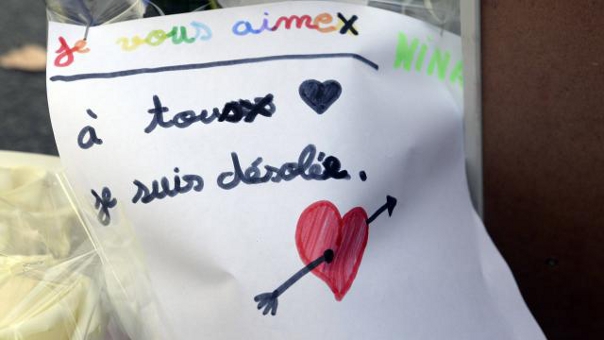 je vous aimex
NINA
à tousxx
je suis désolée.